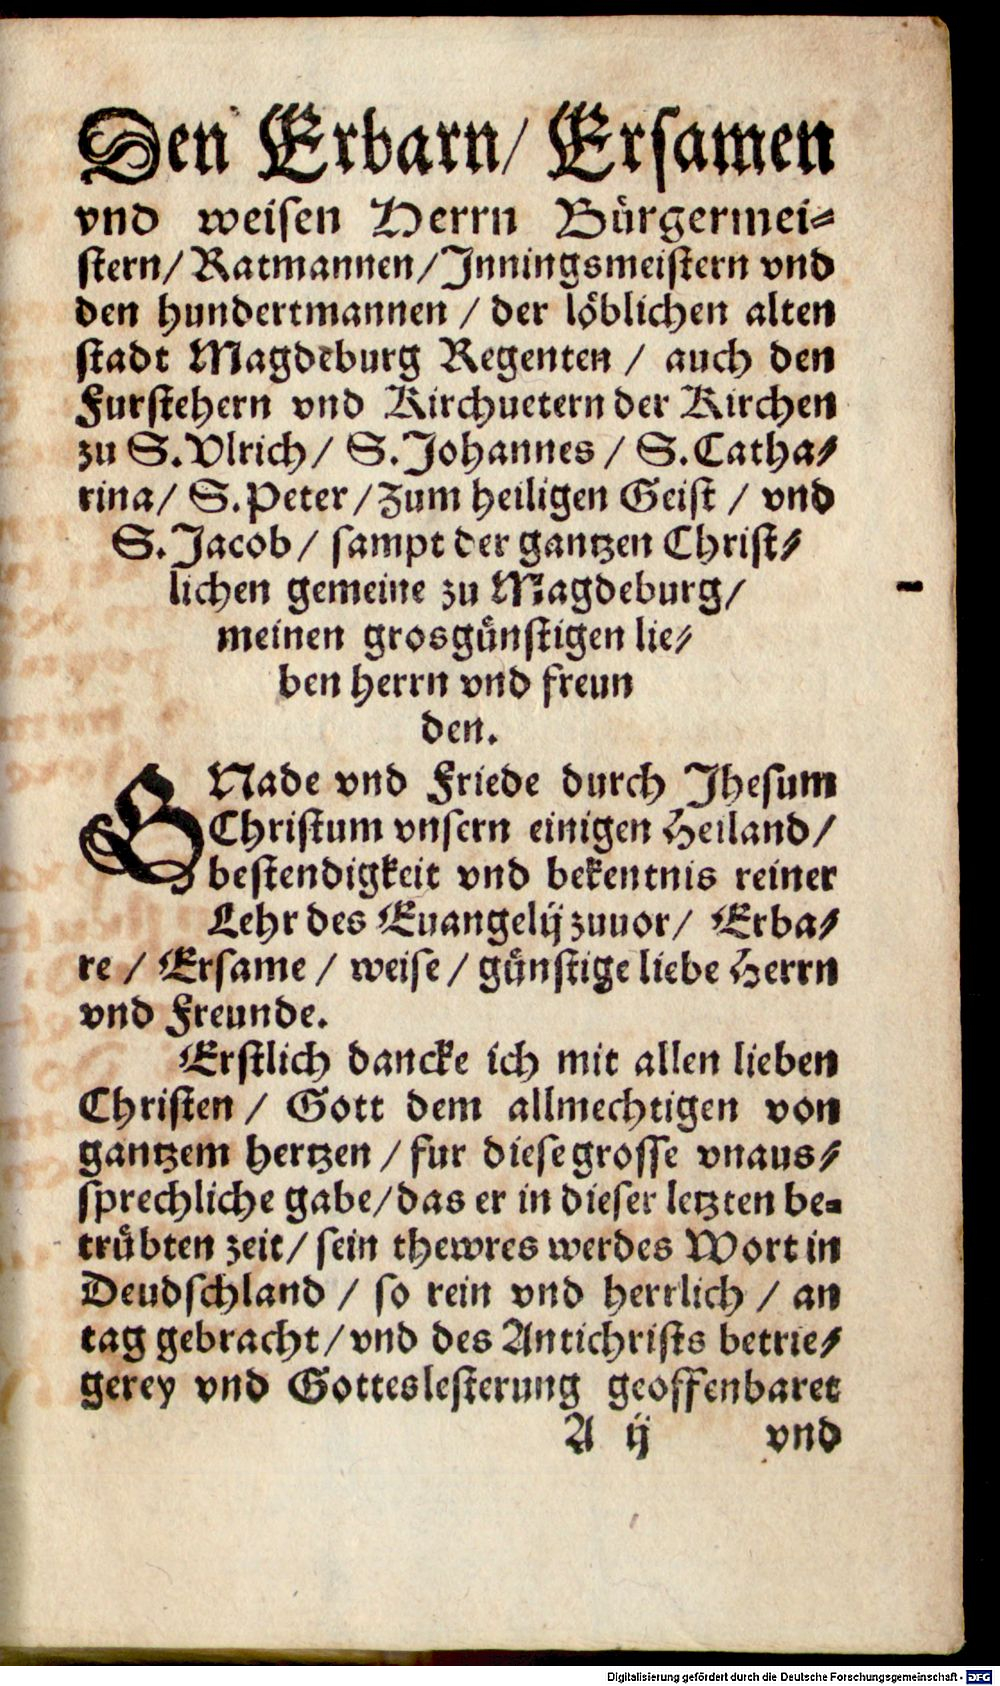 Den Erbarn/ Ersamen
vnd weisen Herrn Bürgermei-
stern/ Ratmannen/ Inningsmeistern vnd
den hundertmannen / der löblichen alten
stadt Magdeburg Regenten / auch den
Furstehern vnd Kirchuetern der Kirchen
zu S. Vlrich/ S. Johannes / S. Catha-
rina/ S. Peter / zum heiligen Geist / vnd
S. Jacob / sampt der gantzen Christ-
lichen gemeine zu Magdeburg/
meinen grosgünstigen lie-
ben herrn vnd freun
den.
GNade vnd Friede durch Jhesum
Christum vnsern einigen Heiland /
bestendigkeit vnd bekentnis reiner
Lehr des Euangelij zuuor/ Erba-
re / Ersame / weise / günstige liebe Herrn
vnd Freunde.
Erstlich dancke ich mit allen lieben
Christen / Gott dem allmechtigen von
gantzem hertzen / fur diese grosse vnaus-
sprechliche gabe/ das er in dieser letzten be-
trübten zeit/ sein thewres werdes Wort in
Deudschland / so rein vnd herrlich / an
tag gebracht/ vnd des Antichrists betrie-
gerey vnd Gotteslesterung geoffenbaret
A ij vnd
Digitalisierung gefördert durch die Deutsche Forschungsgemeinschaft - DFG